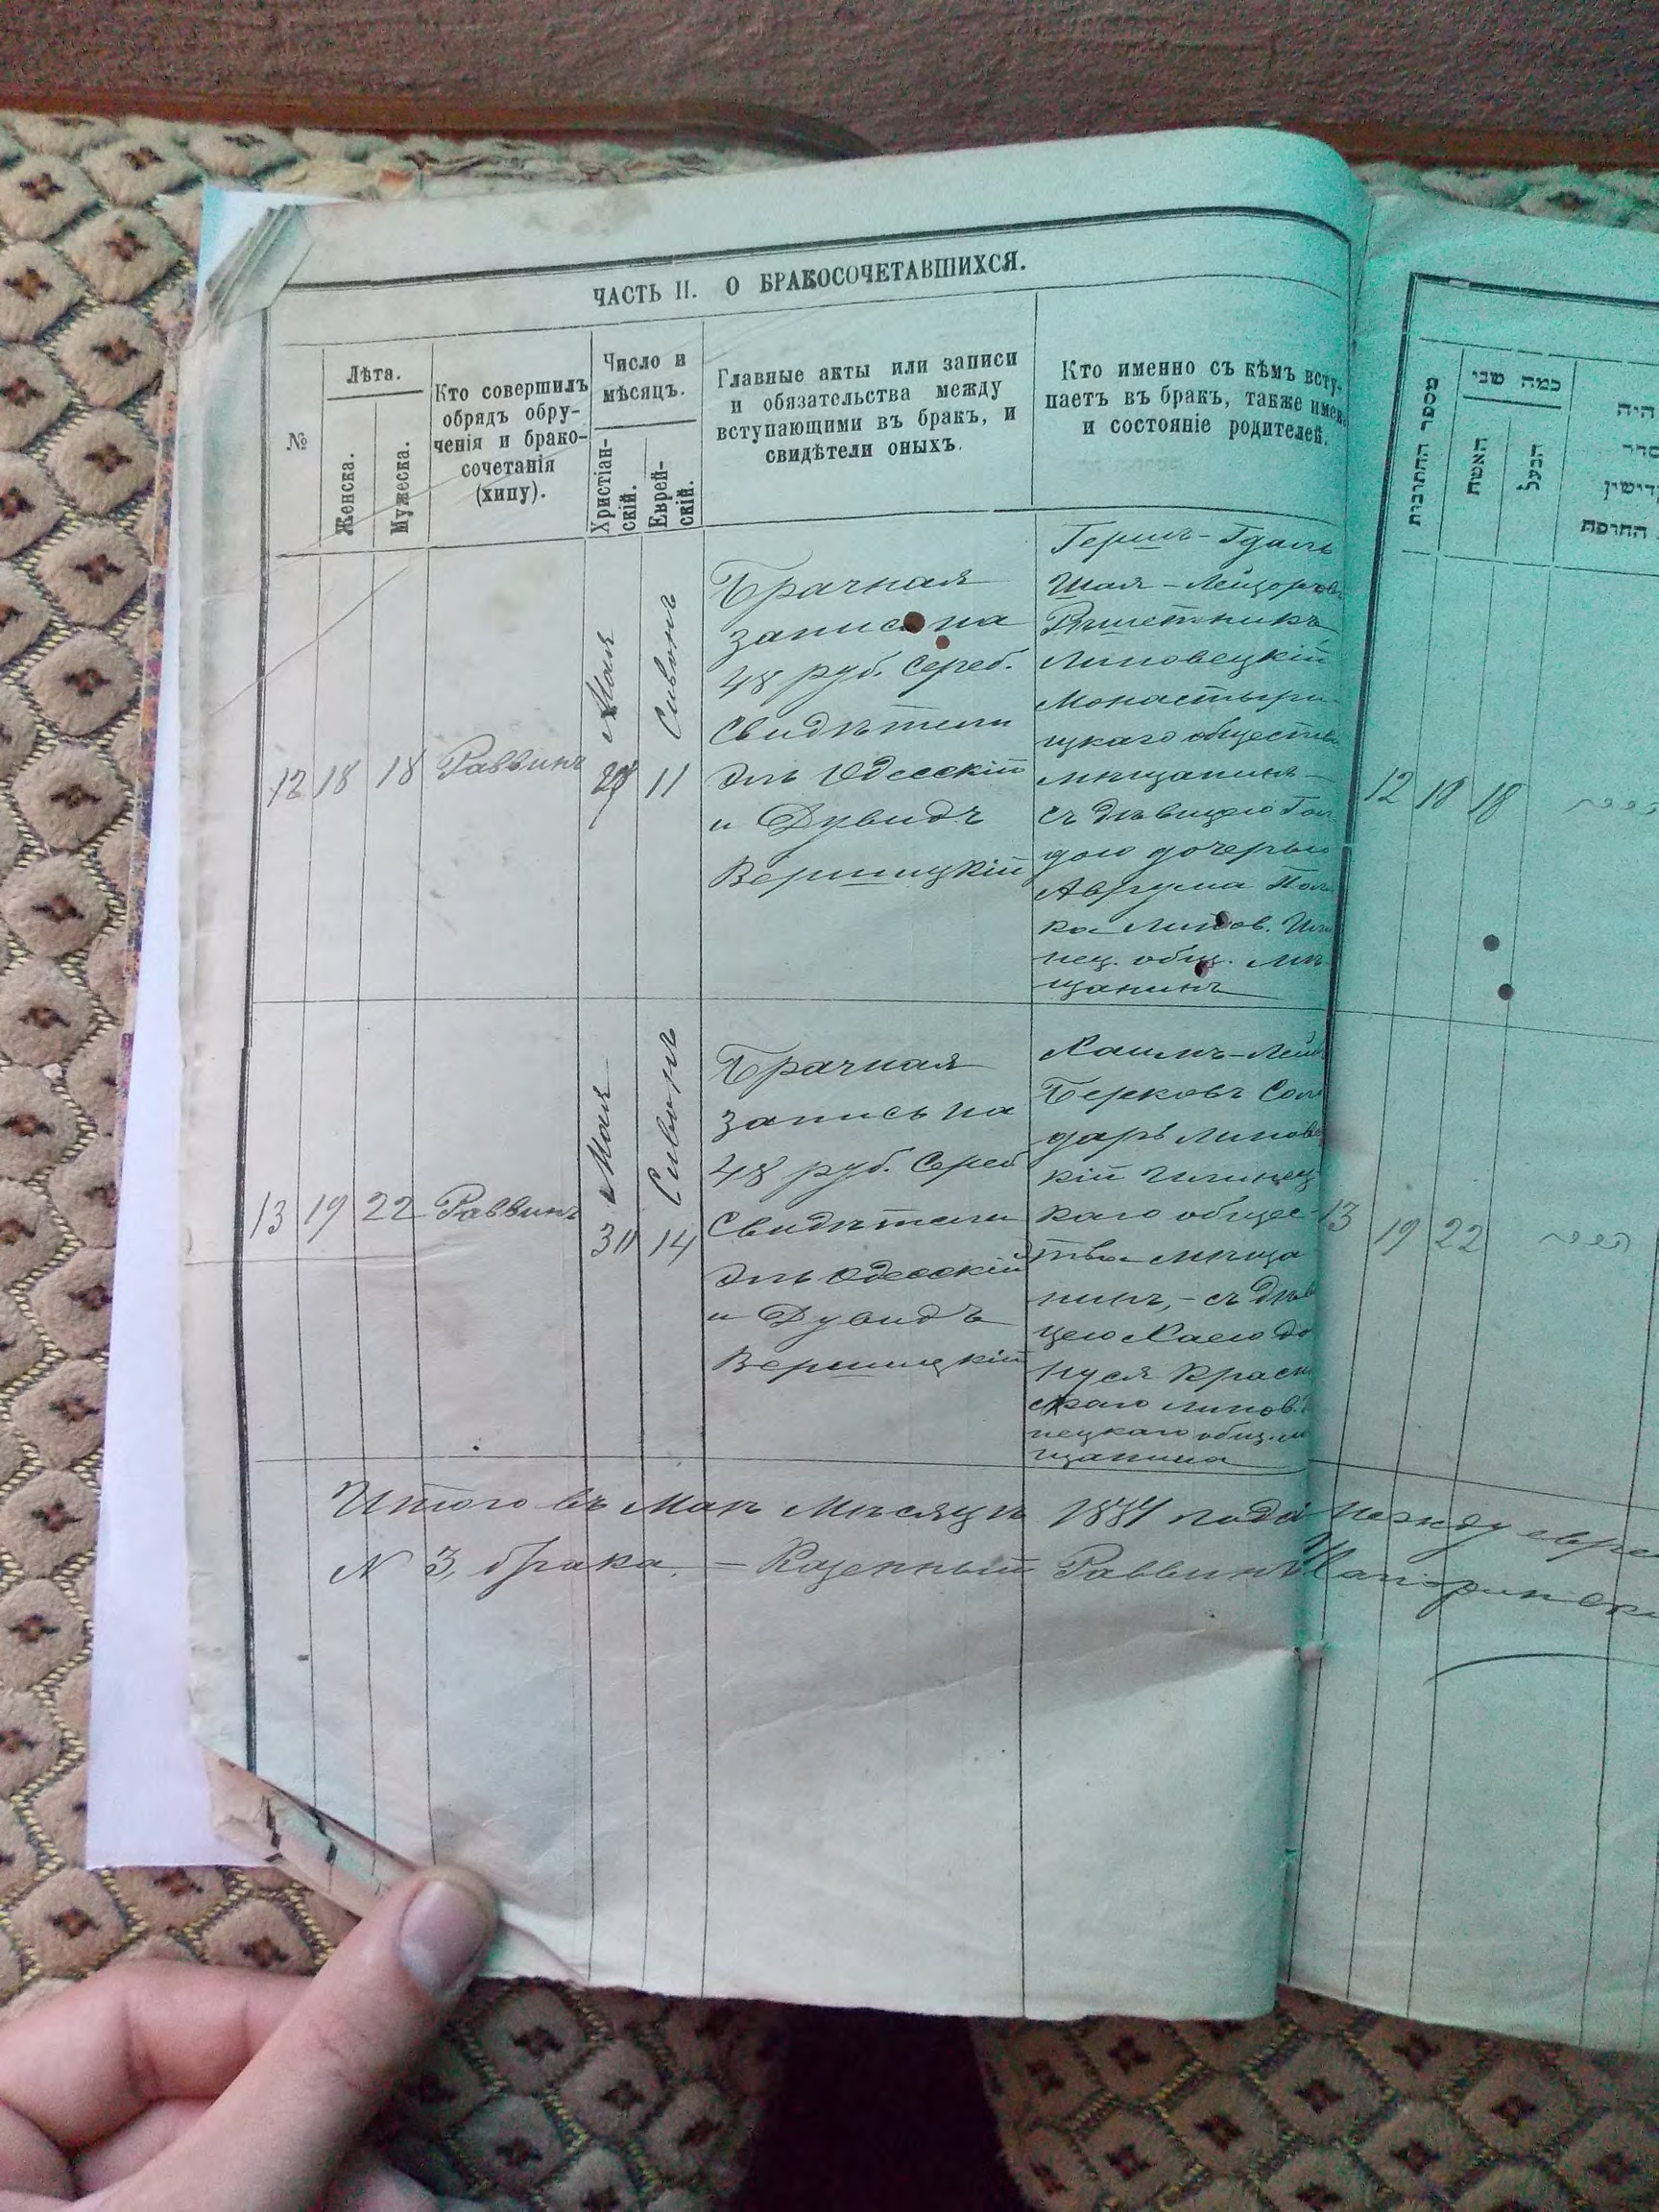 ЧАСТЬ II. О БРАКОСОЧЕТАВШИХСЯ.
№
Лѣта.
Женска.
Мужеска.
Кто совершилъ
обрядъ обру-
ченія и брако-
сочетанія
(хипу).
Число и
мѣсяцъ.
Христіан-
скій.
Еврей-
скій.
Главные акты или записи
и обязательства между
вступающими въ бракъ, и
свидѣтели оныхъ.
Кто именно съ кѣмъ всту-
паетъ въ бракъ, также имен
и состояніе родителей.
12
18
18
Раввинъ
Мая
28
Сивонъ
11
Брачная
запись на
48 руб. сереб.
Свидѣтели
Эль Одесскій
и Дувидъ
Вершицкій
Гершъ-
Шая-Лейзоровъ
Липовецкій
Монастыри
цкаго общества
мѣщанинъ-
съ дѣвицею Гол
дою дочерью
Аврума Пол
ка Липов.
нец. общ. Мѣ
щанинъ
13
19
22
Раввинъ
Мая
31
Сивонъ
14
Брачная
запись на
48 руб. Сереб
Свидѣтели
Эль Одесскій
и Дувидъ
Вершицкій
Хаимъ-Лейб
Берковъ
Липовец
кій Илинец
каго общес-
тва мѣща
нинъ,- съ дѣв
цею Хаею до
Нуся Красн
скаго Липов.
нецкаго общ. м
щанина
Итого въ Маѣ Мѣсяцѣ 1881 года между евре
N 3, брака. - Казенный Раввинъ
מספר החתונות
כמה שני
האשה
הבעל
היה
סדר
קדישין
החופה
12
18
18
13
19
22